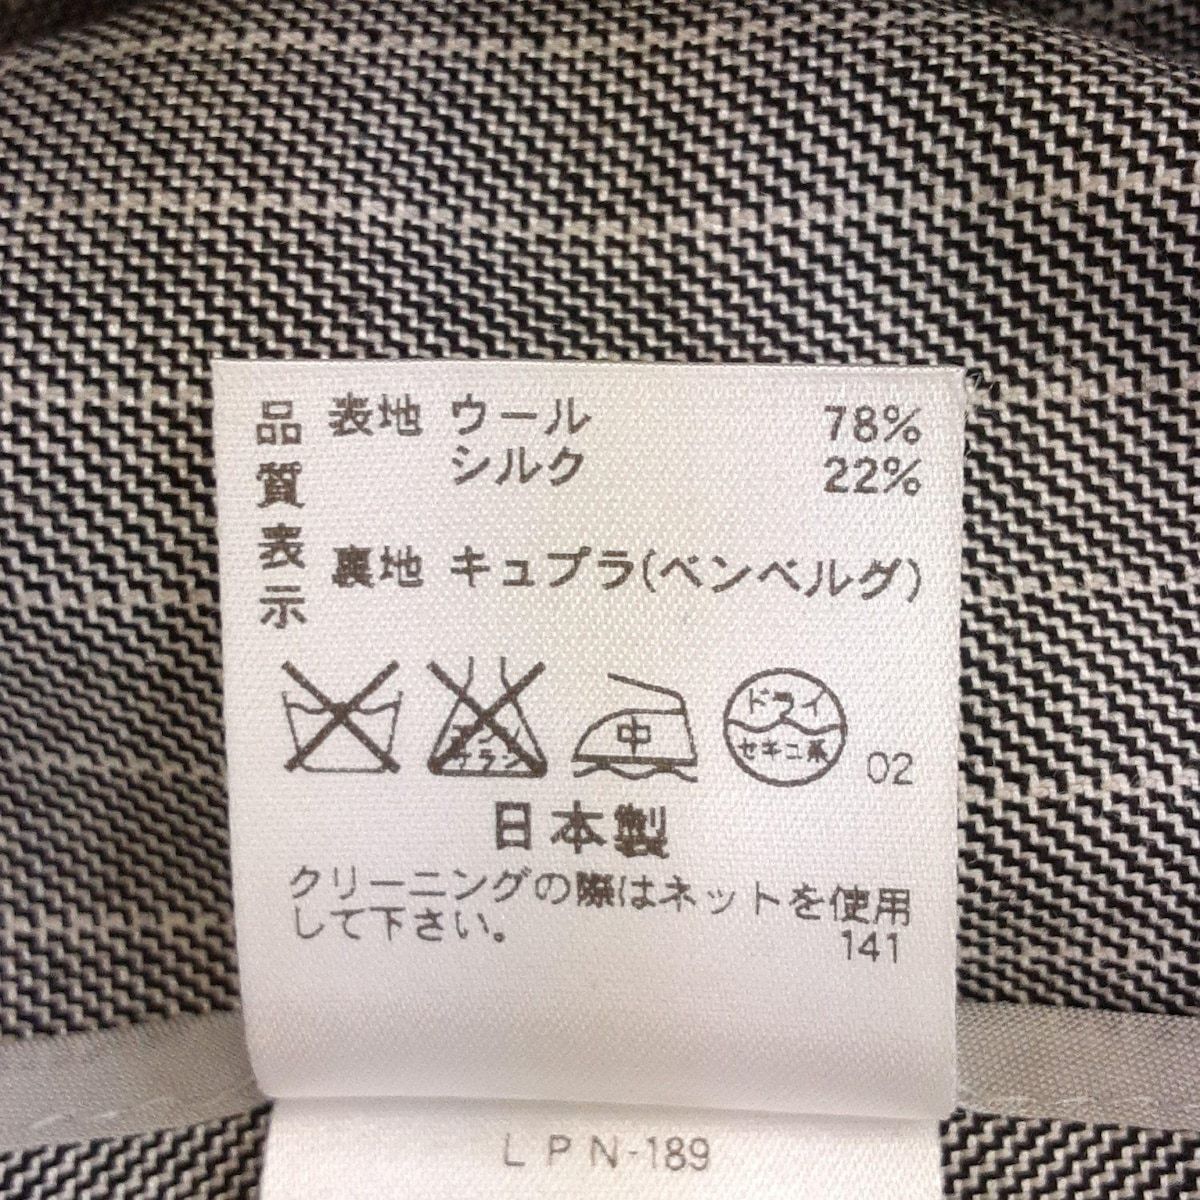 品質表示
表地 ウール 78%
シルク 22%
裏地 キュプラ(ベンベルグ)
エンソ
サラシ
中
ドライ
セキユ系
02
日本製
クリーニングの際はネットを使用
して下さい。
141
LPN-189